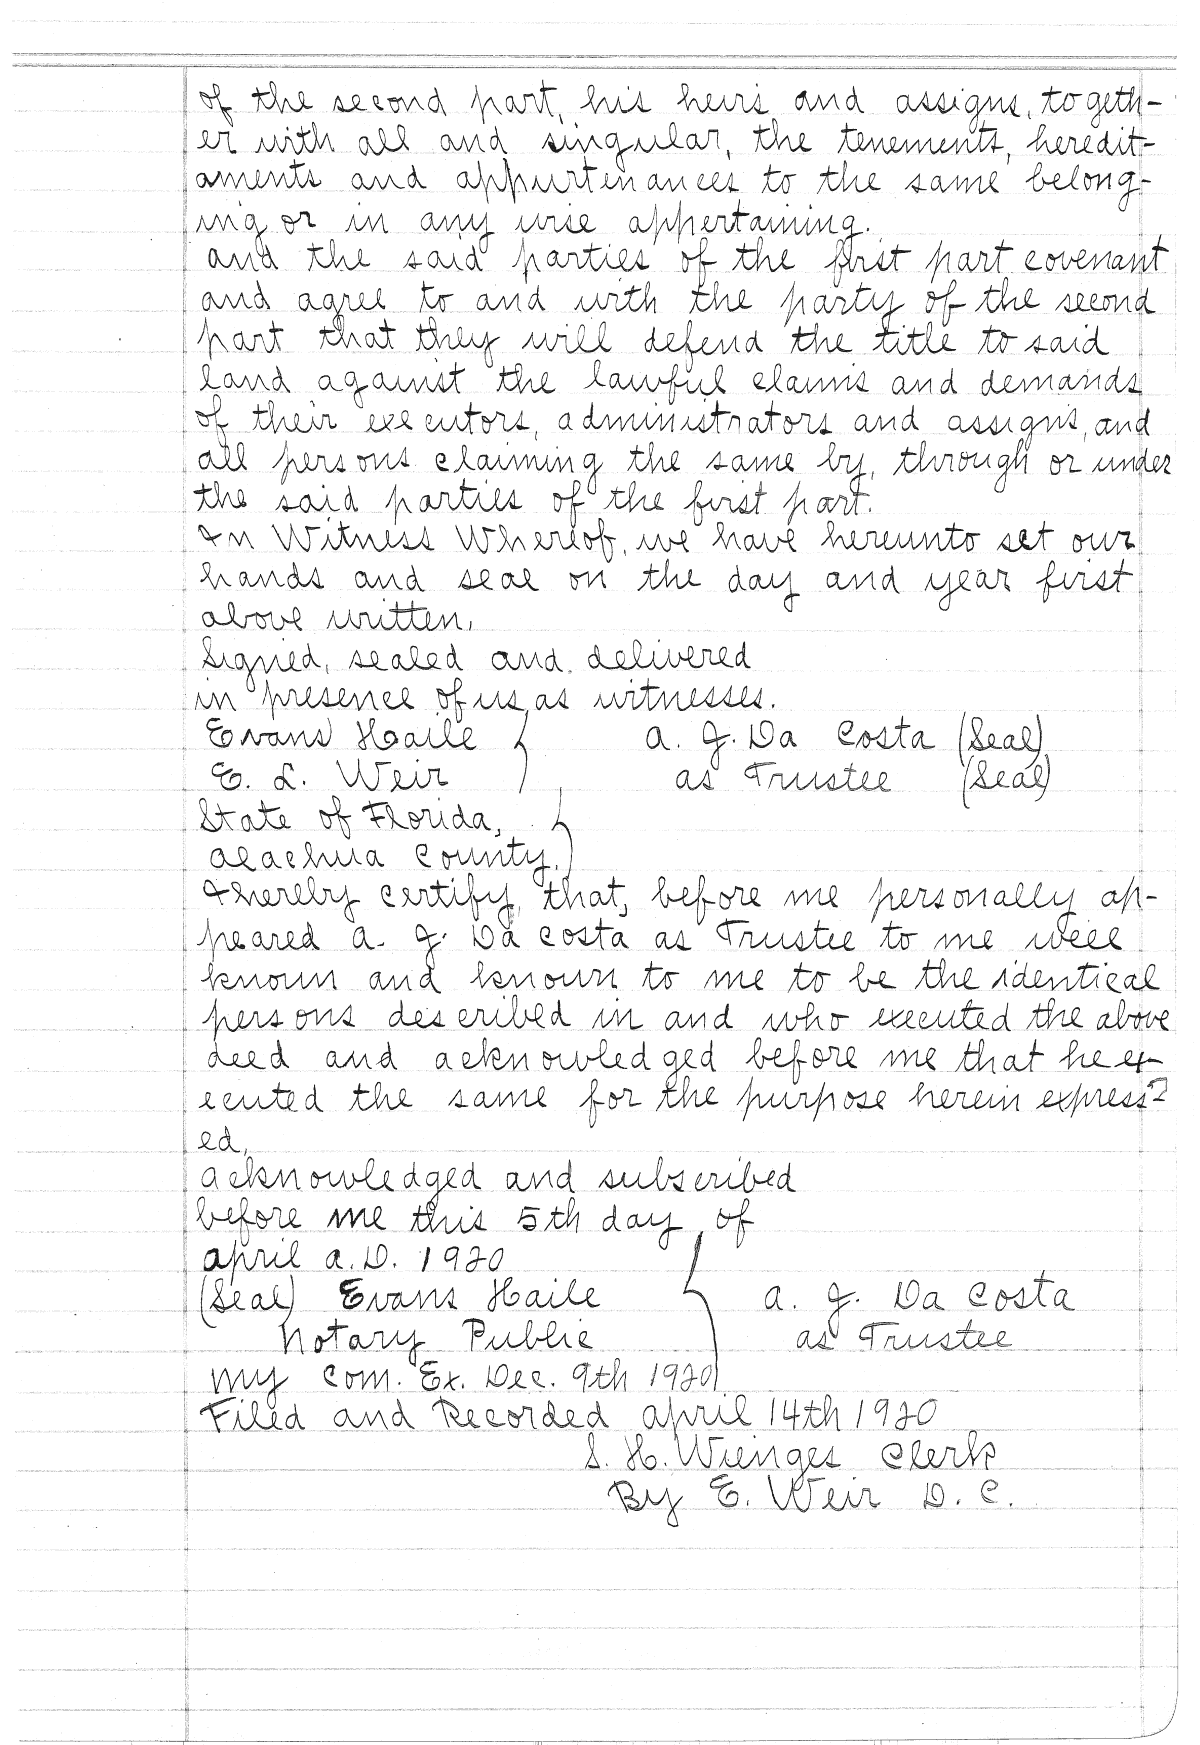 of the second part, his heirs and assigns, togeth-
er with all and singular, the tenements, heredit-
aments and appurtenances to the same belong-
ing or in any wise appertaining.
And the said parties of the first part covenant
and agree to and with the party of the second
part that they will defend the title to said
land against the lawful claims and demands
of their executors, administrators and assigns, and
all persons claiming the same by, through or under
the said parties of the first part.
In Witness Whereof, we have hereunto set our
hands and seal on the day and year first
above written.
Signed, sealed and delivered
in presence of us as witnesses.
Evans Haile } A. J. Da Costa (Seal)
E. L. Weir } as Trustee (Seal)
State of Florida, }
Alachua County. }
I hereby certify, that, before me personally ap-
peared A. J. Da Costa as Trustee to me well
known and known to me to be the identical
persons described in and who executed the above
deed and acknowledged before me that he ex-
ecuted the same for the purpose herein express-
ed.
Acknowledged and subscribed
before me this 5th day of
April A.D. 1920
(Seal) Evans Haile } A. J. Da Costa
Notary Public as Trustee
My Com. Ex. Dec. 9th 1920
Filed and Recorded April 14th 1920
S. H. Wienges Clerk
By E. Weir D. C.